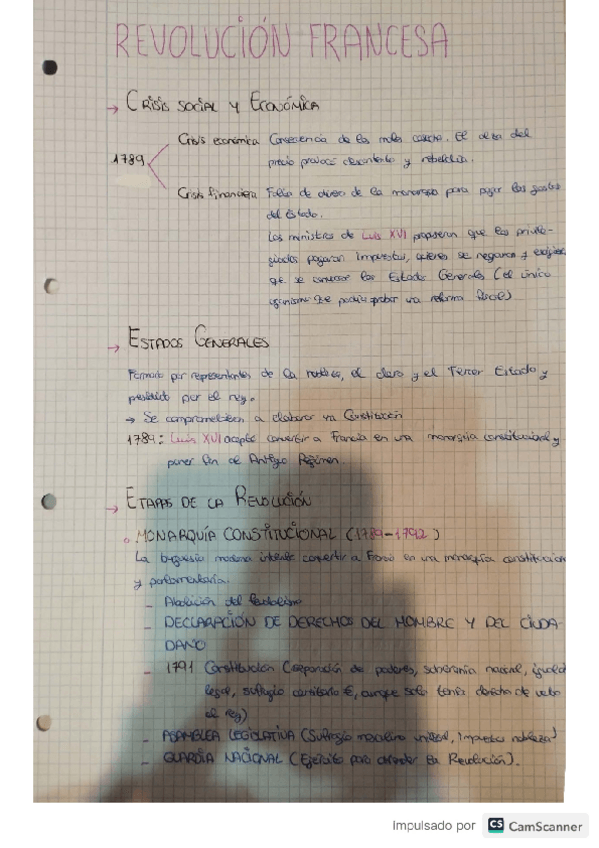 REVOLUCIÓN FRANCESA
→ CRISIS SOCIAL Y ECONÓMICA
1789
Crisis económica Consecuencia de las malas cosechas. El alza del
precio provocó descontento y rebeldía.
Crisis financiera Falta de dinero de la monarquía para pagar los gastos
del Estado.
Los ministros de Luis XVI propusieron que los privile-
giados pagaran impuestos, quienes se negaron y
que se convocar los Estados Generales (el único
organismo que podía probar una reforma fiscal)
→ ESTADOS GENERALES
Formado por representantes de la nobleza, el clero y el Tercer Estado y
presidido por el rey.
→ Se comprometieron a elaborar una Constitución
1789: Luis XVI aceptó convertir a Francia en una monarquía constitucional y
poner fin al Antiguo Régimen.
→ ETAPAS DE LA REVOLUCIÓN
MONARQUÍA CONSTITUCIONAL (1789-1792)
La burguesía moderada intentó convertir a Francia en una monarquía constitucional
y parlamentaria.
- Abolición del feudalismo
- DECLARACIÓN DE DERECHOS DEL HOMBRE Y DEL CIUDA-
DANO
- 1791 Constitución (separación de poderes, soberanía nacional, igualdad
legal, sufragio censitario €, aunque solo tenía derecho de veto
el rey)
- ASAMBLEA LEGISLATIVA (Sufragio masculino, impuestos nobleza)
- GUARDIA NACIONAL (Ejército para defender la Revolución).
Impulsado por CS CamScanner